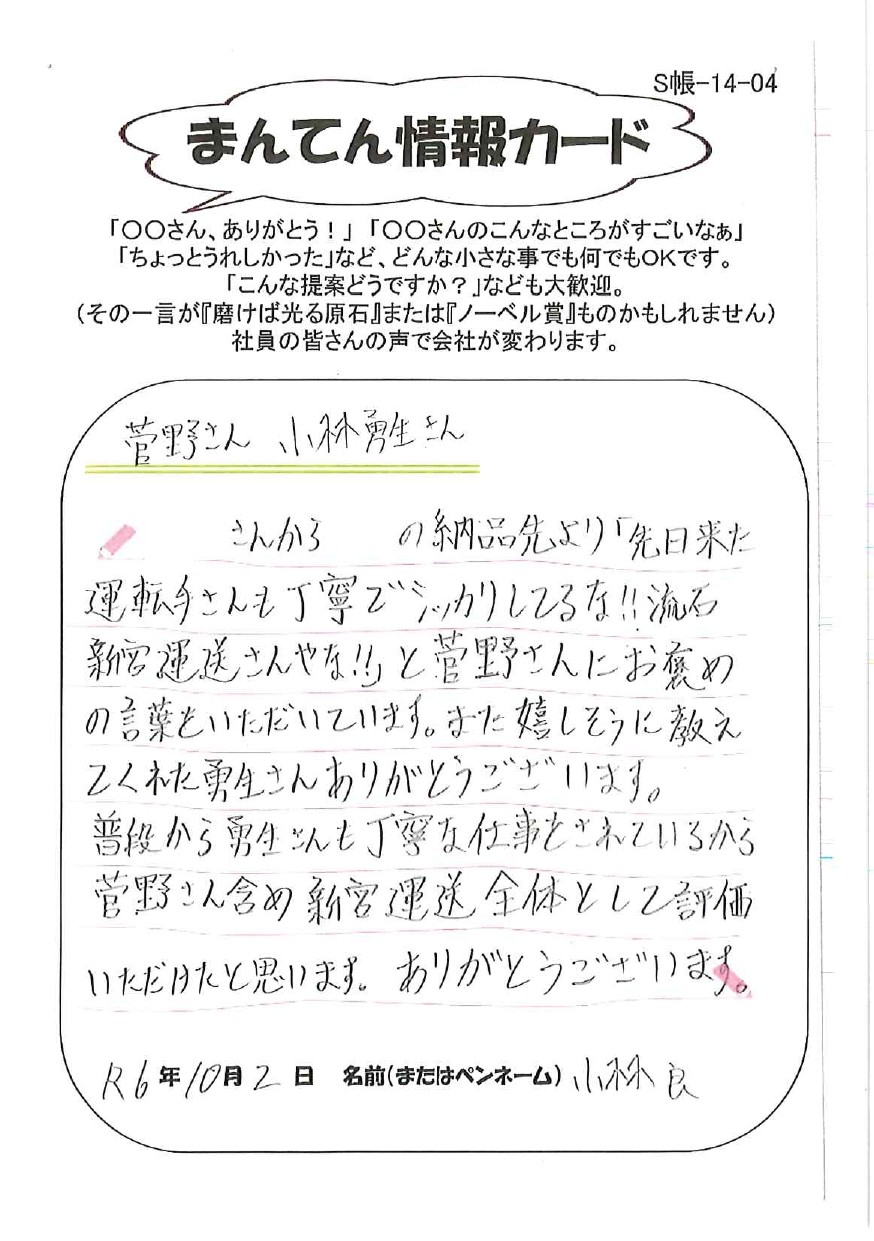 S帳-14-04
まんてん情報カード
「〇〇さん、ありがとう！」「〇〇さんのこんなところがすごいなぁ」
「ちょっとうれしかった」など、どんな小さな事でも何でもOKです。
「こんな提案どうですか？」なども大歓迎。
(その一言が『磨けば光る原石』または『ノーベル賞』ものかもしれません)
社員の皆さんの声で会社が変わります。
菅野さん 小林勇生さん
さんから の納品先より「先日来た
運転手さんも丁寧でシッカリしてるな!!流石
新宮運送さんやな!!」と菅野さんにお褒め
の言葉をいただいています。また嬉しそうに教え
てくれた勇生さんありがとうございます。
普段から勇生さんも丁寧な仕事をされているから
菅野さん含め新宮運送全体として評価
いただけたと思います。ありがとうございます。
R6年10月2日 名前(またはペンネーム) 小林 良